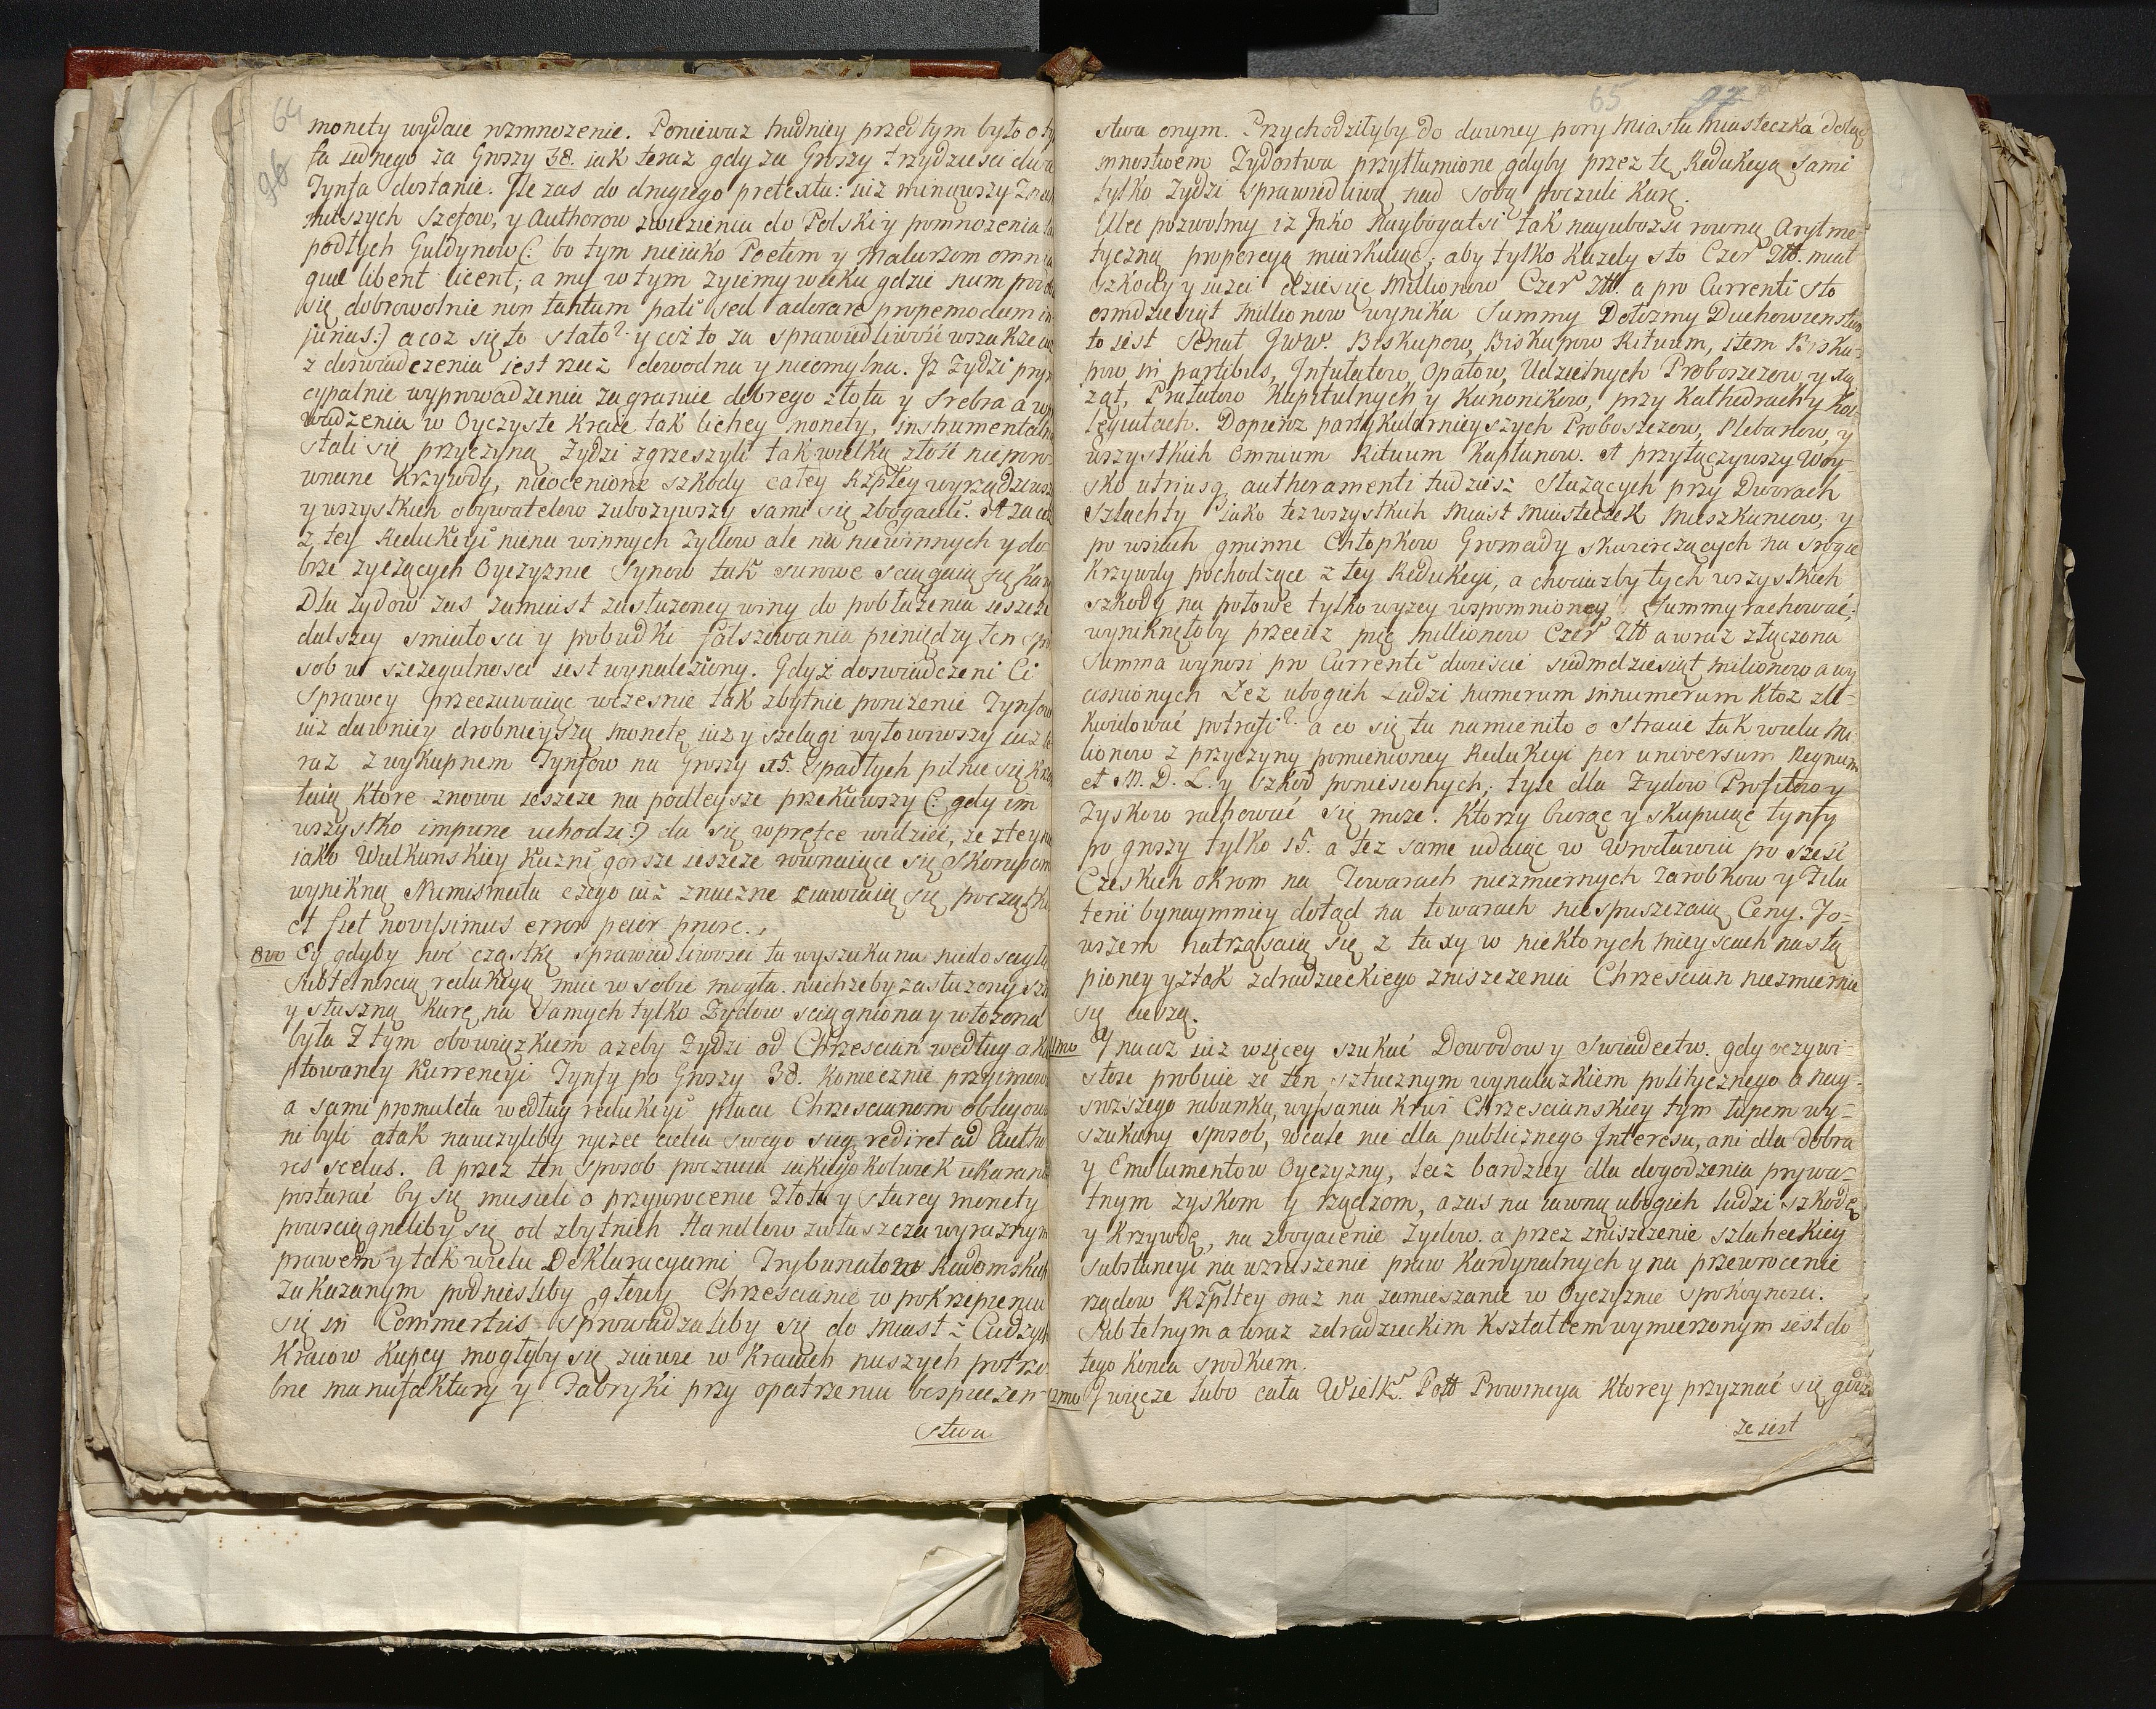 64
96
monety wydaie rozmnozenie. Poniewaz trudniey przed tym było o Ty
fa iednego za Groszy 38. iak teraz gdy za Groszy trzydziesci dwa
Tynfa dostanie. Ile zas do drugiego pretextu: iuż minąwszy
szych Szefow, y Authorow zwiezienia do Polski y pomnozenia
podłych Guldynow (: bo tym nieiako Poetom y Malarzom omnia
quae libent licent; a my w tym zyiemy wieku gdzie nam
się dobrowolnie non tantum pati sed adorare propemodum in
jurias:) a coz się to stało? y coż to za sprawiedliwość wszakze
z doswiadczenia iest rzecz dowodna y nieomylna. Iz Zydzi pryn
cypalnie wyprowadzenia za granice dobrego złota y srebra a w
wadzenia w Oyczyste Kraie tak lichey monety, instrumentalną
stali się przyczyną Zydzi zgrzeszyli tak wielką złość nieporo
wnane krzywdy, nieocenione szkody całey Rzpltey wyrządziwszy
y wszystkich obywatelow zubozywszy sami się zbogacili. A za co
z tey Redukcyi nie na winnych Zydow ale na niewinnych y do-
brze zyczących Oyczyznie Synow tak surowe sciągaią się kary
Dla Zydow zas zamiast zasłuzoney winy do pobłazenia ieszcze
dalszey smiałosci y pobudki fałszowania pieniędzy ten spo
sob w szczegulnosci iest wynaleziony. Gdyż doswiadczeni Ci
Sprawcy przeczuwaiąc wczesnie tak zbytnie ponizenie Tynfow
iuż dawniey drobnieyszą monetę iuz y szelągi wyłowiwszy iuż te
raz z wykupnem Tynfow na Groszy 15. spadłych pilnie się krzą
taią które znowu ieszcze na podleysze przekuwszy (: gdy im
wszystko impune uchodzi:) da się w prętce widzieć, że z tey
iako Wulkanskiey Kuzni gorsze ieszcze rownaiące się Skorupom
wynikną Numismata czego iuż znaczne ziawiaią się początki
et fiet novissimus error peior priore.
8vo Ey gdyby choć cząstkę sprawiedliwosci ta wyszukana niedoscigłą
Subtelnoscią redukcyą miec w sobie mogła. niechzeby zasłuzony
y słuszną karę na samych tylko Zydow sciągniona y włozona
była Z tym obowiązkiem azeby Zydzi od Chrzescian według ak
ptowaney Kurrencyi Tynfy po Groszy 38. koniecznie przyimow
a sami promulcta według redukcyi płacic Chrzescianom obligow
ni byli a tak nauczyliby ryczec cielca swego sicq rediret ad Autho
res scelus. A przez ten sposob poczucia iakiegokolwiek ukarania
postarać by się musieli o przywrocenie Złota y starey monety
powsciągneliby się od zbytnich Handlow zwłaszcza wyraznym
prawem y tak wielu Deklaracyami Trybunałow Radomskich
zakazanym podniesliby głowy Chrzescianie w pokrzepieniu
się in Commertus Sprowadzaliby się do Miast z Cudzych
Kraiow Kupcy mogłyby się ziawic w Kraiach naszych potrze
bne manufaktury y Fabryki przy opatrzeniu bespieczen-
stwa
65
97
stwa onym. Przychodziłyby do dawney pory Miasta Miasteczka dotąd
mnostwem Zydostwa przytłumione gdyby przez tę Redukcyą sami
tylko Zydzi sprawiedliwą nad sobą poczuli karę.
Ulec pozwolmy iz Jako Naybogatsi tak nayubozsi rowną Arytme
tyczną proporcyą miarkuiąc; aby tylko kazdy sto Czer. Złł. miał
szkody y iuzci dziesięc Millionow Czer. Złł. a pro Currenti sto
osmdziesiąt Millionow wynika Summy Dołozmy Duchowienstwo
to iest Senat Jww. Biskupow, Biskupow Rituum, item Bisku-
pow in partibus, Infułatow, Opatow, Udzielnych Proboszczow, y xią
ząt, Prałatow Kapitulnych y Kanonikow, przy Kathedrach y Kol
legiatach. Dopieroz partykularnieyszych Proboszczow, Plebanow, y
wszystkich omnium Rituum Kapłanow. A przyłączywszy Woy-
sko utriusq autheramenti tudziesz słuzących przy Dworach
Szlachty iako tez wszystkich Miast Miasteczek Mieszkancow, y
po wsiach gminne Chłopkow Gromady skwierczących na srogie
Krzywdy pochodzące z tey Redukcyi, a chociazby tych wszystkich
szkody na połowe tylko wyzey wspomnioney Summy rachować;
wyniknęłoby przeciez pięc millionow Czer. Złł a wraz złączona
summa wynosi pro Currenti dwiescie siedmdziesiąt milionow a wy
cisnionych Łez ubogich Ludzi numerum innumerum ktoz zli-
kwidować potrafi? a co się tu namieniło o stracie tak wielu Mi
lionow z przyczyny pomienioney Redukcyi per universum Regnum
et M. D. L. y szkod poniesionych, tyle dla Zydow Profitow y
Zyskow rachować się może. Ktorzy biorąc y skupuiąc tynfy
po groszy tylko 15. a tez same udaiąc w Wrocławiu po szesc
Czeskich okrom na Towarach niezmiernych zarobkow y Zdzi
terii bynaymniey dotąd na towarach niespuszczaią Ceny. Jo-
wszem natrząsaią się z taxy w niektorych mieyscach nastą
pioney y z tak zdradzieckiego zniszczenia Chrzescian niezmiernie
się cieszą.
1mo Y nacoz iuz więcey szukać Dowodow y swiadectw. gdy oczywi-
stose probuie ze ten sztucznym wynalazkiem politycznego a nay-
srozszego rabunku, wyssania krwi Chrzescianskiey tym łupem wy-
szukany sposob, wcale nie dla publicznego Interesu, ani dla dobra
y Emolumentow Oyczyzny, lecz bardziey dla dogodzenia prywa-
tnym zyskom y rządzom, a zas na iawną ubogich ludzi szkodę
y Krzywdę, na zbogacenie Zydow. a przez zniszczenie szlacheckiey
substancyi na wzruszenie praw Kardynalnych y na przewrocenie
rządow Rzpltey oraz na zamieszanie w Oyczyznie spokoynosci.
Subtelnym a teraz zdradzieckim kształtem wymierzonym iest do
tego konca srodkiem.
2mo Y więcze lubo cała Wielk. Poll Prowincya ktorey przyznać się godzi
ze iest